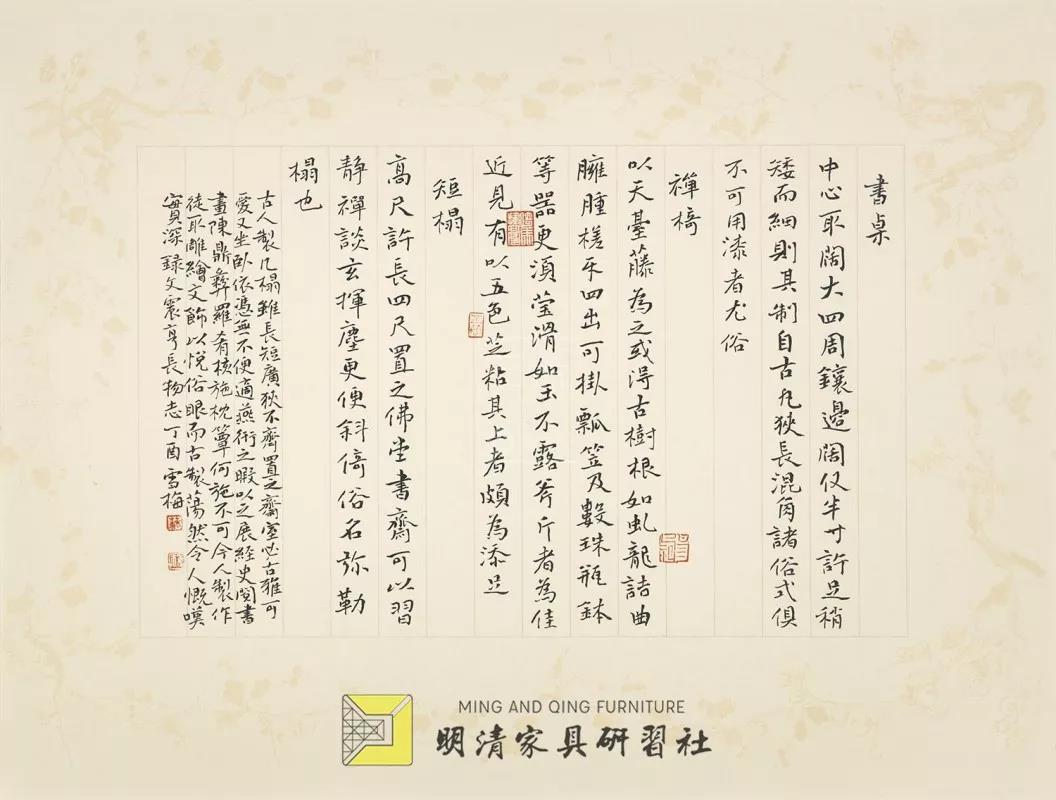 書桌
中心取闊大四周鑲邊闊仅半寸許足稍
矮而細則其制自古凡狹長混角諸俗式俱
不可用漆者尤俗
禪椅
以天臺藤為之或得古樹根如虬龍詰曲
臃腫槎牙四出可掛瓢笠及數珠瓶鉢
等器更須莹滑如玉不露斧斤者為佳
近見有以五色芝粘其上者頗為添足
短榻
高尺許長四尺置之佛堂書齋可以習
静禪談玄揮麈更便斜倚俗名弥勒
榻也
古人製几榻雖長短廣狹不齊置之齋室必古雅可
愛又坐卧依憑無不便適燕衎之暇以之展經史閱書
畫陳鼎彝羅肴核施枕簟何施不可今人製作
徒取雕繪文飾以悅俗眼而古製蕩然令人慨嘆
實深 録文震亨長物志丁酉雪梅
MING AND QING FURNITURE
明清家具研習社